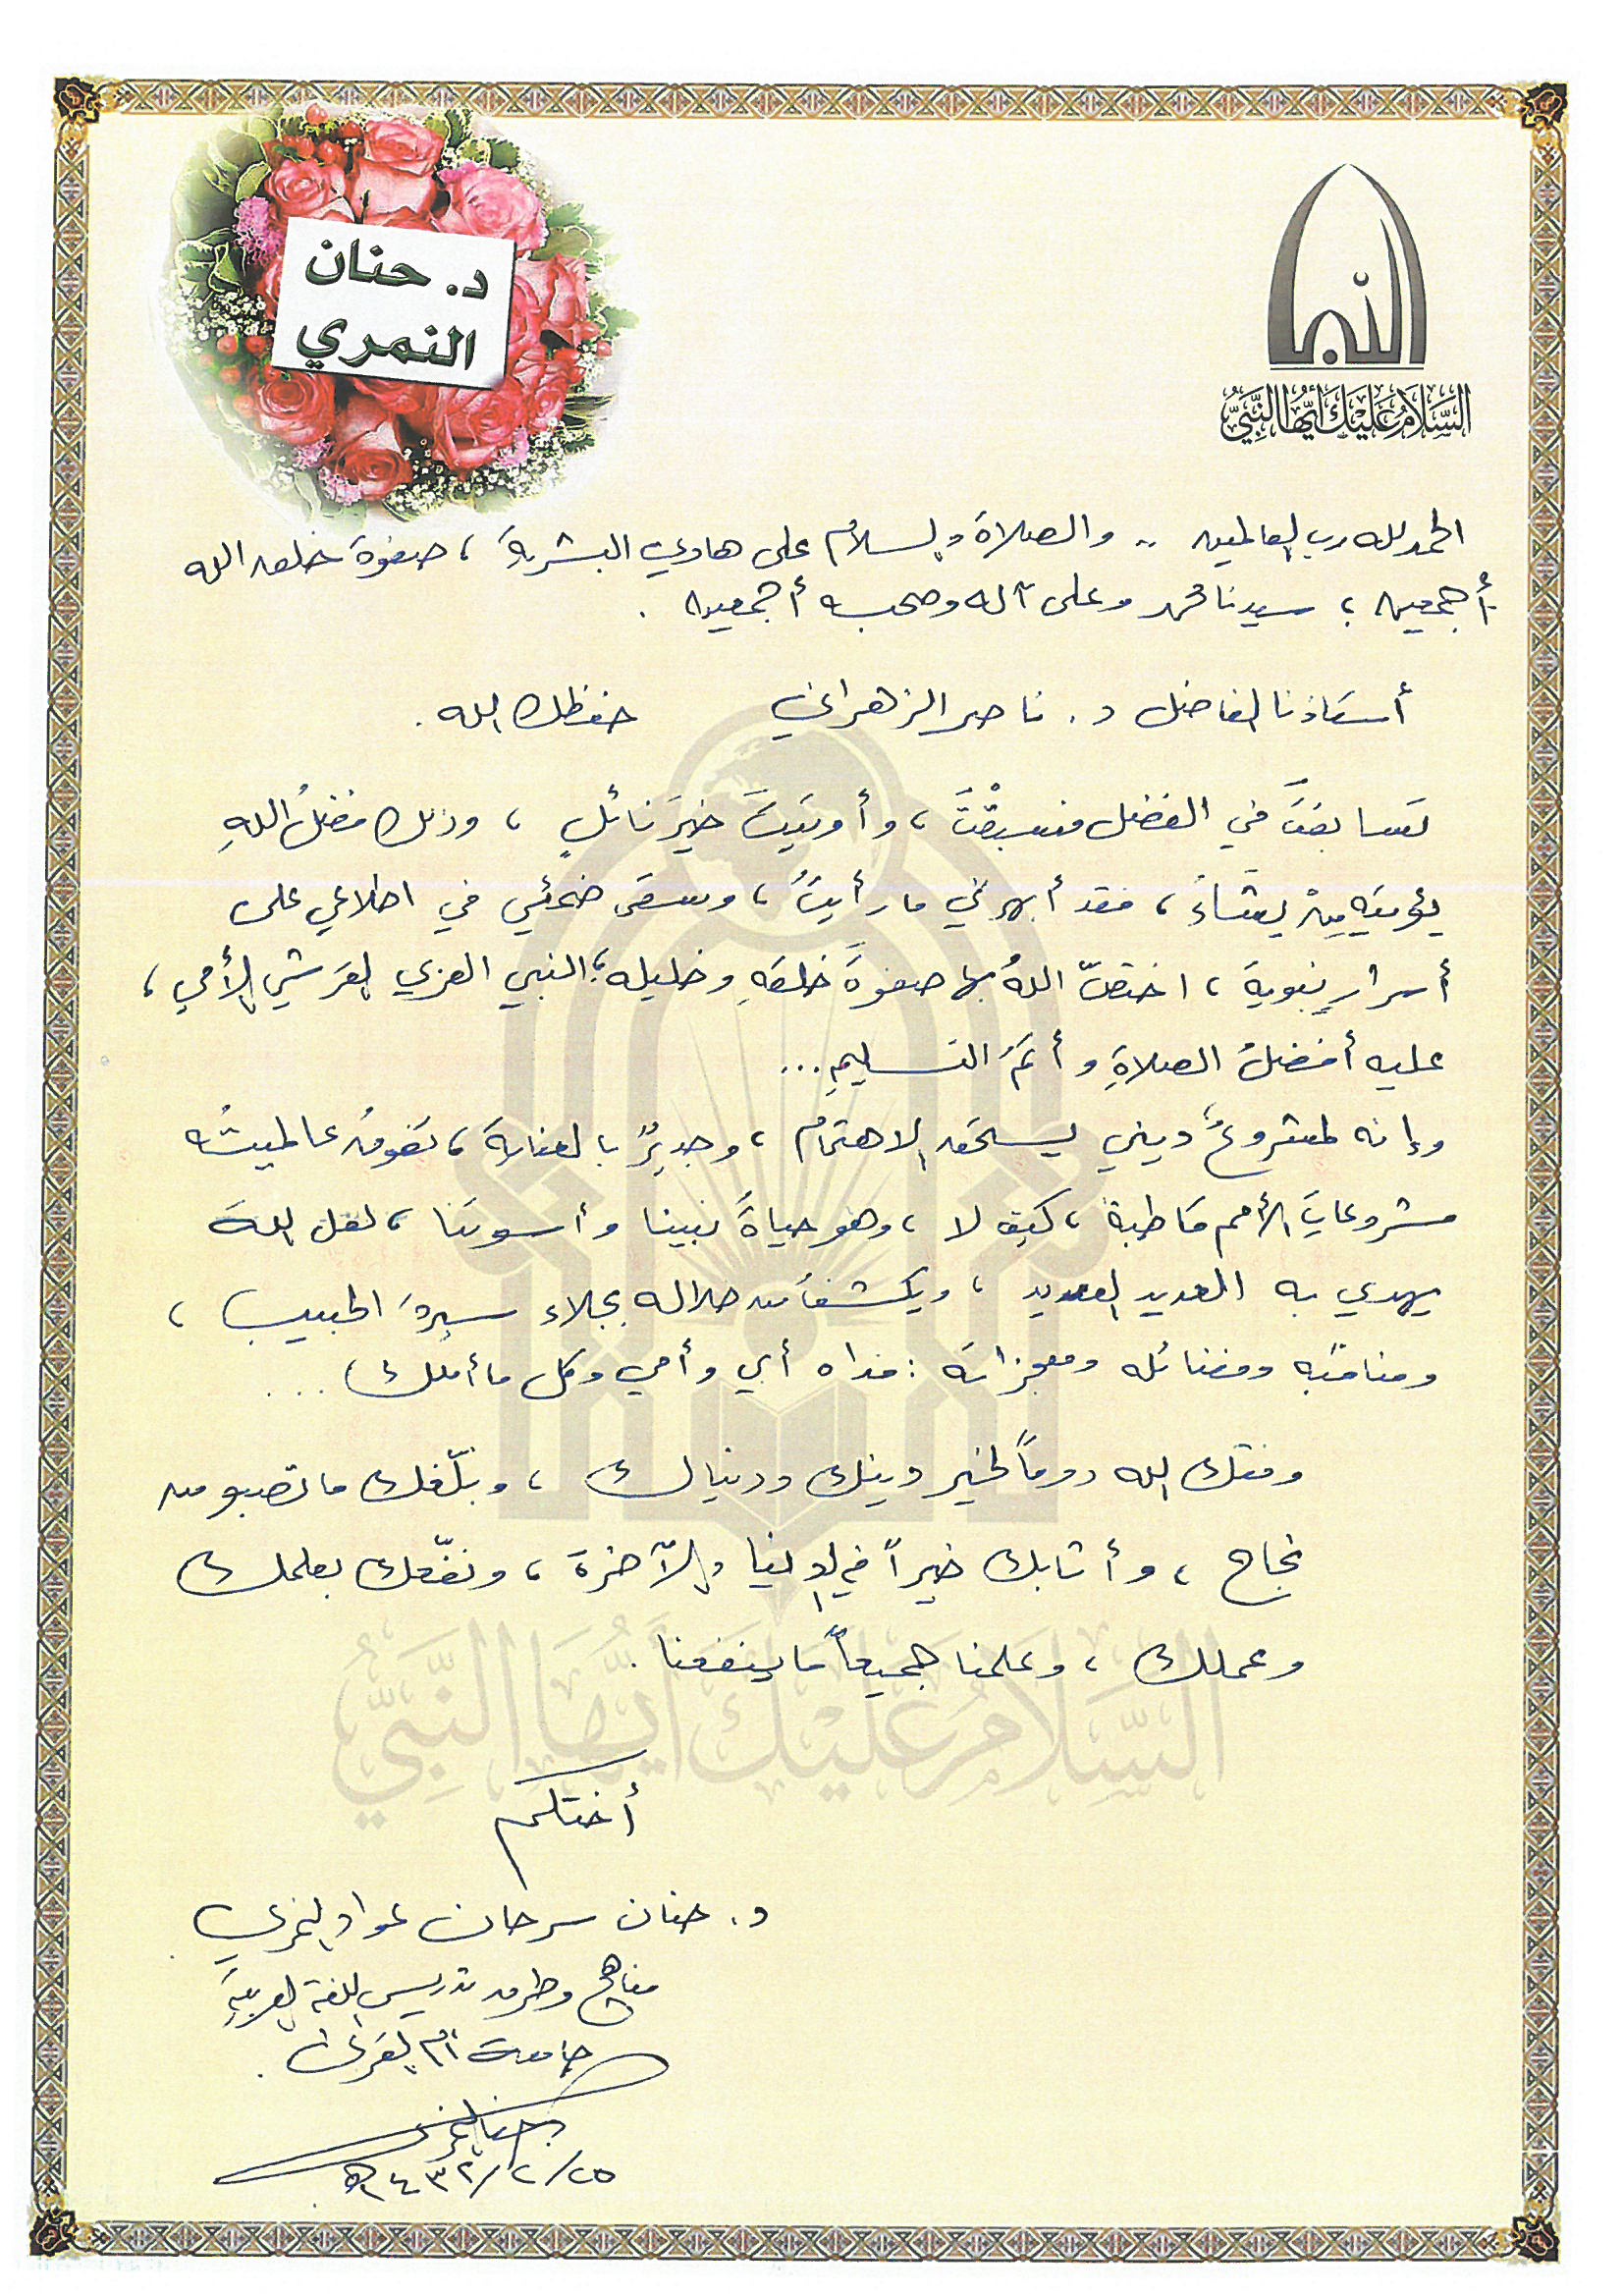 د. حنان
النمري
السلام عليك أيها النبي
الحمد لله رب العالمين .. والصلاة والسلام على هادي البشرية ، صفوة خلق الله
أجمعين ؛ سيدنا محمد وعلى آله وصحبه أجمعين .
أستاذنا الفاضل د. ناصر الزهراني حفظك الله .
تسابقتَ في الفضل فسبقْتَ ، وأوتيتَ خيرَ نائلٍ ، وذلك فضلُ اللهِ
يؤتيه مِنْ يشاءُ ، فقد أبهرني ما رأيتُ ، وسقى ضمئي في اطلاعي على
أسرارٍ نبوية ، اختصّ اللهُ بها صفوةَ خلقهِ وخليله ؛ النبي العربي القرشي الأمي ،
عليه أفضلُ الصلاةِ وأتمُ التسليمِ ...
وإنه لمشروعٌ ديني يستحق الاهتمام ، وجديرٌ بالعناية ، تفوقُ عالميتُه
مشروعاتِ الأمم قاطبة ، كيف لا ، وهو حياةُ نبينا وأسوتنا ، لعل اللهَ
يهدي به العديد العديد ، ويكشفُ من خلاله بجلاء سيرةَ الحبيب ،
ومناقبه وفضائله ومعجزاته : فداه أبي وأمي وكل ما أملك ...
وفقك الله دوماً لخير دينك ودنياك ، وبلّغك ما تصبو من
نجاح ، وأثابك خيراً في الدنيا والآخرة ، ونفّعك بعلمك
وعملك ، وعلمنا جميعاً ما ينفعنا .
السلام عليك أيها النبي
أختكم
د. حنان سرحان عواد النمري
مناهج وطرق تدريس اللغة العربية
جامعة أم القرى .
د. حنان النمري
٢٥/٢/١٤٣٢هـ